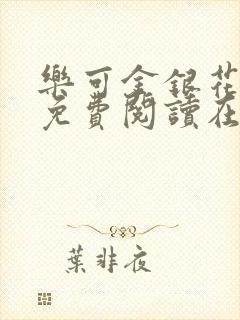 樂可金銀花
免費閱讀在
葉非夜